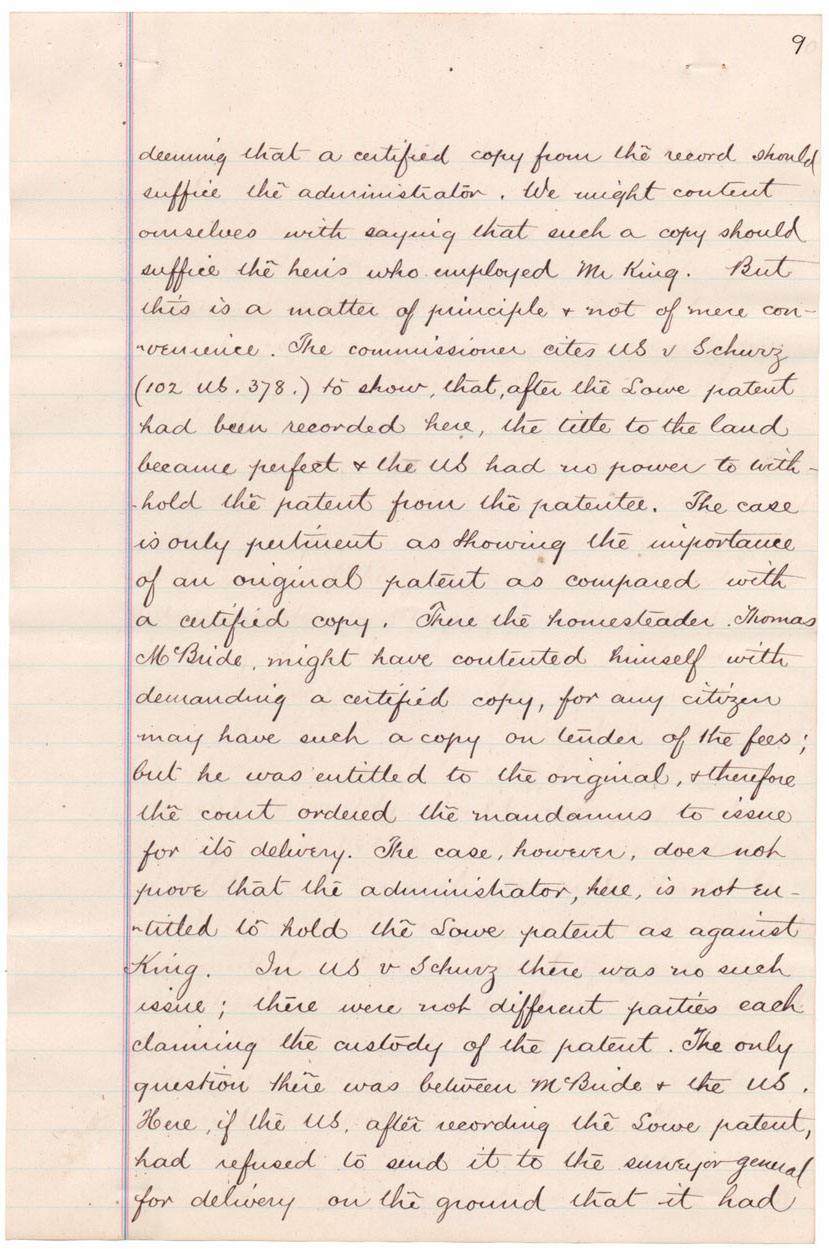 9
deeming that a certified copy from the record should
suffice the administrator. We might content
ourselves with saying that such a copy should
suffice the heirs who employed Mr King. But
this is a matter of principle & not of mere con-
-venience. The commissioner cites US v Schurz
(102 US. 378.) to show, that, after the Lowe patent
had been recorded here, the title to the land
became perfect & the US had no power to with-
-hold the patent from the patentee. The case
is only pertinent as showing the importance
of an original patent as compared with
a certified copy. There the homesteader, Thomas
McBride, might have contented himself with
demanding a certified copy, for any citizen
may have such a copy on tender of the fees;
but he was entitled to the original, & therefore
the court ordered the mandamus to issue
for its delivery. The case, however, does not
prove that the administrator, here, is not en-
-titled to hold the Lowe patent as against
King. In US v Schurz there was no such
issue; there were not different parties each
claiming the custody of the patent. The only
question there was between McBride & the US.
Here, if the US, after recording the Lowe patent,
had refused to send it to the surveyor general
for delivery on the ground that it had